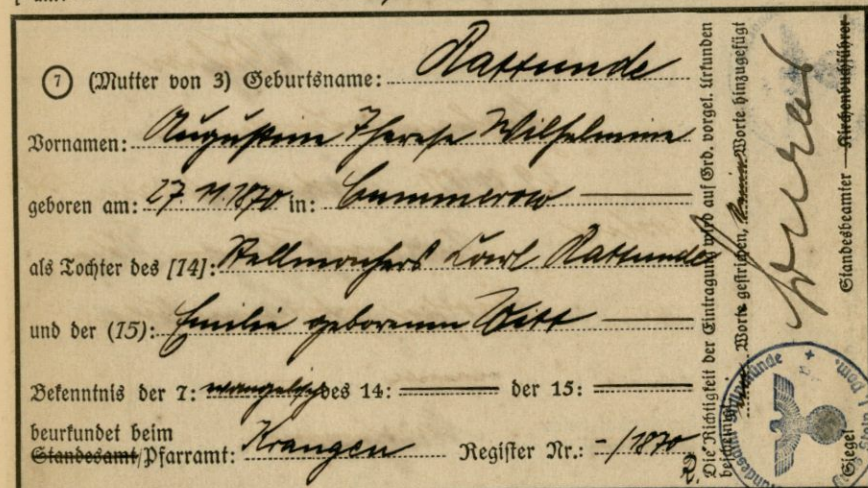 7 (Mutter von 3) Geburtsname: Rattunde
Vornamen: Augustine Therese Wilhelmine
geboren am: 27.11.1870 in: Cummerow
als Tochter des [14]: Stellmachers Carl Rattunde
und der (15): Emilie geborenen Witt
Bekenntnis der 7: evangelisch des 14: der 15:
beurkundet beim
Standesamt/Pfarramt: Krangen Register Nr.: -/1870
R.
Die Richtigkeit der Eintragung wird auf Grd. vorgel. Urkunden
bescheinigt. Worte gestrichen, Worte hinzugefügt
Standesbeamter Kirchenbuchführer
Siegel